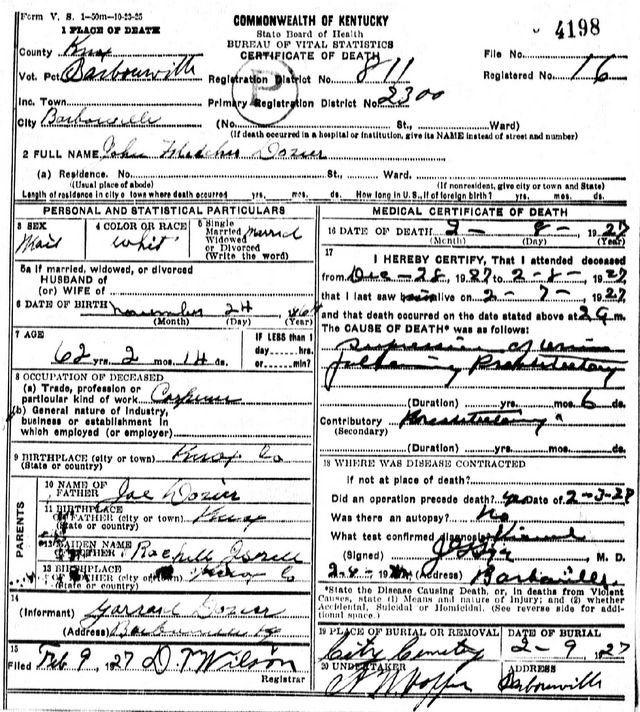 Form V. S. 1-50m-10-23-25
COMMONWEALTH OF KENTUCKY
4198
1 PLACE OF DEATH
State Board of Health
BUREAU OF VITAL STATISTICS
CERTIFICATE OF DEATH
County Knox
File No.
Vot. Pct Barbourville
Registration District No. 811
Registered No. 16
P
Inc. Town
Primary Registration District No. 2300
City Barbourville
(No. St., Ward)
(If death occurred in a hospital or institution, give its NAME instead of street and number)
2 FULL NAME John Dozier
(a) Residence. No. St., Ward.
(Usual place of abode) (If nonresident, give city or town and State)
Length of residence in city or town where death occurred yrs. mos. ds. How long in U.S., if of foreign birth? yrs. mos. ds.
PERSONAL AND STATISTICAL PARTICULARS
3 SEX
Mail
4 COLOR OR RACE
Whit
5 Single
Married
Widowed
or Divorced
(Write the word)
Married
5a If married, widowed, or divorced
HUSBAND of
(or) WIFE of
6 DATE OF BIRTH November 24
(Month) (Day) (Year)
7 AGE
62 yrs. 2 mos. 14 ds.
IF LESS than 1
day hrs.
or min?
8 OCCUPATION OF DECEASED
(a) Trade, profession or
particular kind of work
(b) General nature of industry,
business or establishment in
which employed (or employer)
9 BIRTHPLACE (city or town) Knox Co
(State or country)
PARENTS
10 NAME OF
FATHER Joe Dozier
11 BIRTHPLACE
OF FATHER (city or town) Knox
(State or country)
12 MAIDEN NAME
OF MOTHER
13 BIRTHPLACE
OF MOTHER (city or town) Knox Co
(State or country)
14
(Informant) Garrard Dozier
(Address) Barbourville Ky
15
Filed Feb 9 1927 D. T. Wilson
Registrar
MEDICAL CERTIFICATE OF DEATH
16 DATE OF DEATH 2 - 8 - 1927
(Month) (Day) (Year)
17
I HEREBY CERTIFY, That I attended deceased
from Dec - 28, 1927 to 2 - 8 - 1927,
that I last saw him alive on 2 - 7 - 1927
and that death occurred on the date stated above at 2 a m.
The CAUSE OF DEATH* was as follows:
Supression of Urin
following
(Duration) yrs. mos. 6 ds.
Contributory
(Secondary)
(Duration) yrs. mos. ds.
18 WHERE WAS DISEASE CONTRACTED
if not at place of death?
Did an operation precede death? yes Date of 2-3-27
Was there an autopsy? No
What test confirmed diagnosis?
(Signed) M. D.
2-8- 19 (Address)
*State the Disease Causing Death, or, in deaths from Violent
Causes, state (1) Means and nature of Injury; and (2) whether
Accidental, Suicidal or Homicidal. (See reverse side for addi-
tional space.)
19 PLACE OF BURIAL OR REMOVAL
City Cemetery
DATE OF BURIAL
2 - 9 1927
20 UNDERTAKER
ADDRESS
Barbourville